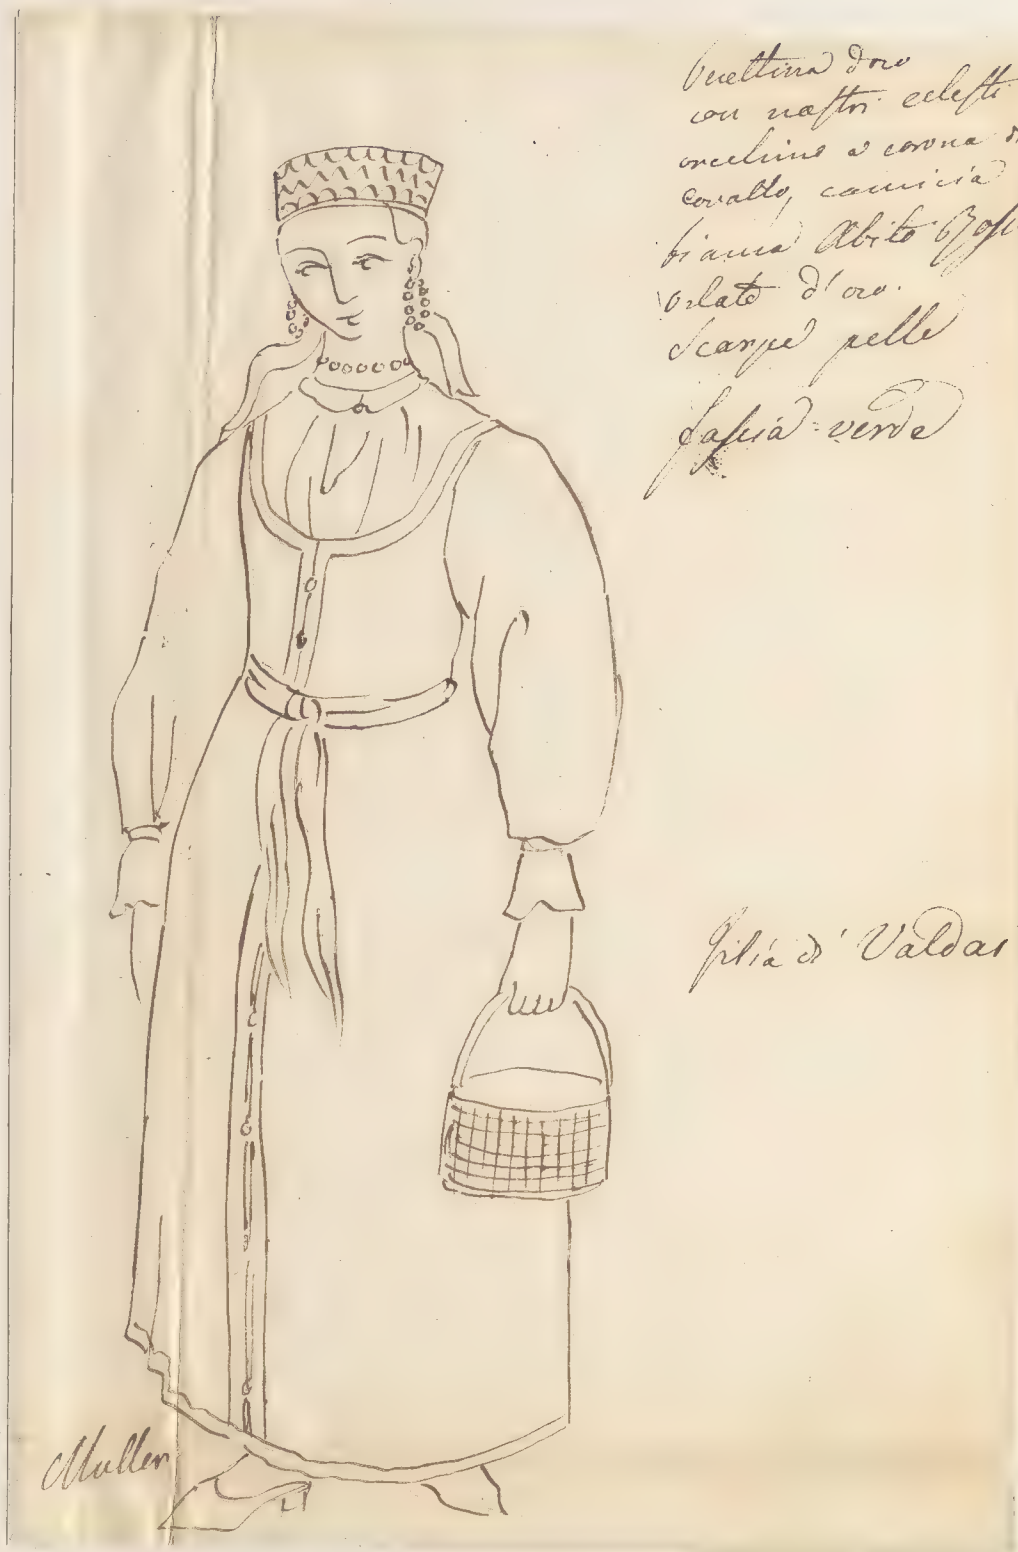 Berettina d'oro
con nastri celesti
orecchino a corona di
corallo, camicia
bianca Abito Ros
orlato d'oro.
Scarpe pelle
fascia = verde
di Valdai
Muller